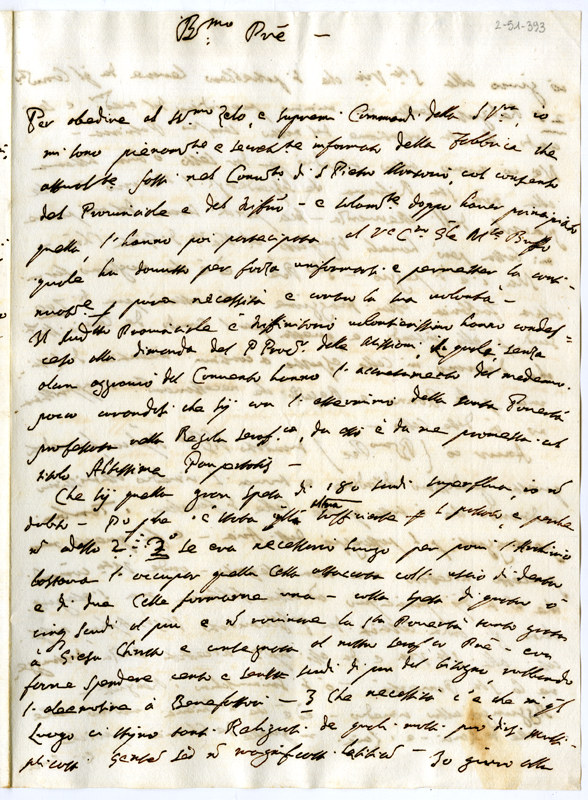 B.mo Prẽ —
2-51-393
Per obedire al SS.mo Zelo, e supremi Commandi della S. V.ra, io
mi sono pienam.te e secretam.te informato della Fabbrica che
attualm.te fassi nel Convento di S. Pietro Montorio, col consenso
del Provinciale e del Diffin.o — e solam.te doppo haver principiato
quella, l'hanno poi participata al
quale ha dovuto per forza uniformarsi e permetter la conti-
nuat.ne pura necessità e contro la sua volontà —
Il sud.tto Provinciale e Diffinitorio volontierissimo hanno condes-
ceso alla dimanda del P. Proc.r delle Missioni, senza
alcun aggravio del Convento hanno l' del medemo.
poco curandosi che sij con l'esterminio della santa Povertà
professata nella Regola Seraf.ca, da essi e da me promessa al
titolo Altissime Paupertatis —
Che sij quella gran spesa di 180 scudi superflua, io nõ
dubito — P.o che c'è stata stanza sufficiente p l' passato, e perche
nõ adesso 2.o Se era necessario luogo per porvi l'Archivio
bastava l'occupar quella Cella attaccata coll' uscio di dentro
e di due Celle formarne una — colla spesa di quattro ò
cinq scudi al più e nõ rovinare la S.ta Povertà tanto grata
à Giesu Christo e consegnata al nostro Serafico Prẽ — con
farne spendere cento e settanta scudi di più del bisogno, rubbando
l'elemosina à Benefattori — 3 Che necessità c'è che in q.l
Luogo ci stijno tanti Religiosi de quali molti più dist.
gentẽ sed nõ magnificasti letitiã — Io giuro alla